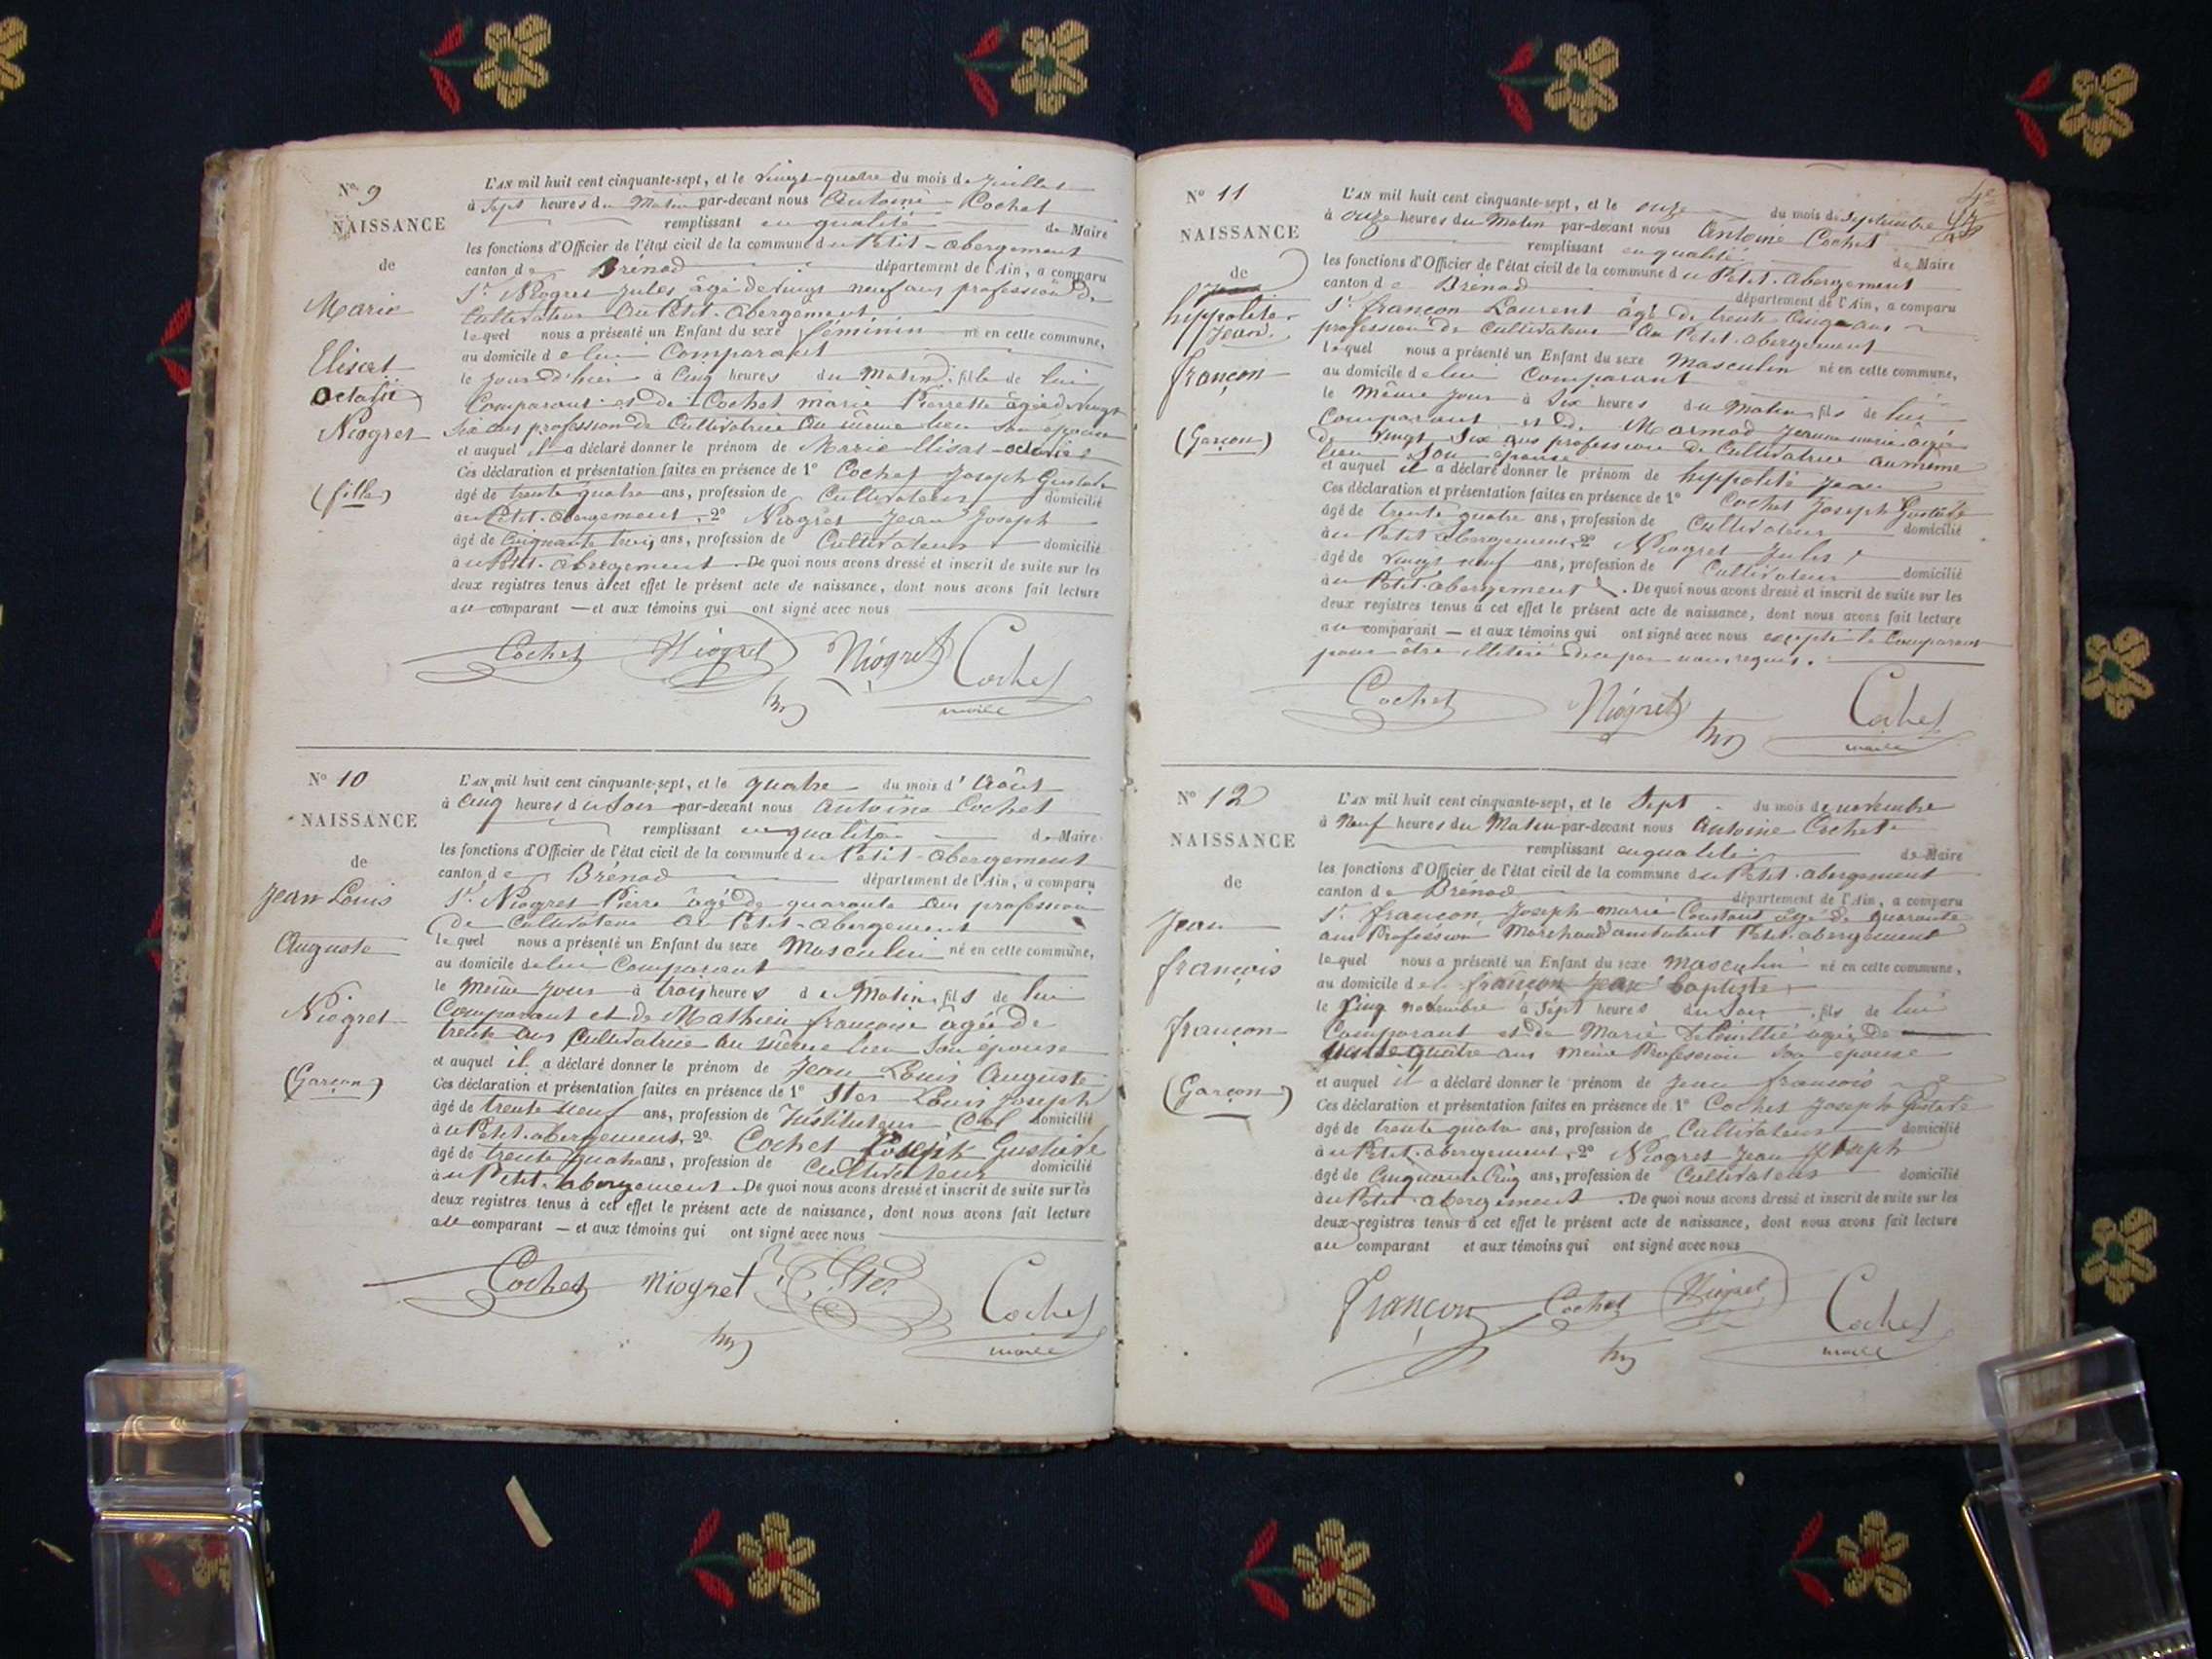 Nº 9
NAISSANCE
de
Marie
Elisat
Octavie
Niogret
(fille)
L'AN mil huit cent cinquante-sept, et le vingt-quatre du mois de Juillet
à Sept heures du Matin par-devant nous Antoine Cochet
remplissant en qualité de Maire
les fonctions d'Officier de l'état civil de la commune du Petit-abergement
canton de Brénod département de l'Ain, a comparu
Sr. Niogret Jules âgé de vingt neuf ans profession de
Cultivateur au Petit-abergement
lequel nous a présenté un Enfant du sexe féminin né en cette commune,
au domicile de lui Comparant
le jour d'hier à Cinq heures du Matin, fille de lui
Comparant et de Cochet marie Pierrette âgée de vingt
Six ans profession de Cultivatrice au même lieu Son épouse
et auquel il a déclaré donner le prénom de Marie Elisat octavie
Ces déclaration et présentation faites en présence de 1º Cochet Joseph Gustave
âgé de trente quatre ans, profession de Cultivateur domicilié
au Petit-abergement, 2º Niogret Jean Joseph
âgé de Cinquante trois ans, profession de Cultivateur domicilié
au Petit-abergement. De quoi nous avons dressé et inscrit de suite sur les
deux registres tenus à cet effet le présent acte de naissance, dont nous avons fait lecture
au comparant — et aux témoins qui ont signé avec nous
Cochet Niogret Niogret Cochet
maire
Nº 10
NAISSANCE
de
Jean Louis
Auguste
Niogret
(Garçon)
L'AN mil huit cent cinquante-sept, et le quatre du mois d'Août
à Cinq heures du Soir par-devant nous Antoine Cochet
remplissant en qualité de Maire
les fonctions d'Officier de l'état civil de la commune du Petit-abergement
canton de Brénod département de l'Ain, a comparu
Sr. Niogret Pierre âgé de quarante ans profession
de Cultivateur au Petit-abergement
lequel nous a présenté un Enfant du sexe Masculin né en cette commune,
au domicile de lui Comparant
le même jour à trois heures du Matin, fils de lui
Comparant et de Mathieu françoise âgée de
trente ans Cultivatrice au même lieu Son épouse
et auquel il a déclaré donner le prénom de Jean Louis Auguste
Ces déclaration et présentation faites en présence de 1º Ster Louis Joseph
âgé de trente neuf ans, profession de Instituteur domicilié
au Petit-abergement, 2º Cochet Joseph Gustave
âgé de trente quatre ans, profession de Cultivateur domicilié
au Petit-abergement. De quoi nous avons dressé et inscrit de suite sur les
deux registres tenus à cet effet le présent acte de naissance, dont nous avons fait lecture
au comparant — et aux témoins qui ont signé avec nous
Cochet Niogret Ster Cochet
maire
Nº 11
NAISSANCE
de
hippolite
Jean
françon
(Garçon)
L'AN mil huit cent cinquante-sept, et le onze du mois de Septembre
à onze heures du Matin par-devant nous Antoine Cochet
remplissant en qualité de Maire
les fonctions d'Officier de l'état civil de la commune du Petit-abergement
canton de Brénod département de l'Ain, a comparu
Sr. françon Laurent âgé de trente Cinq ans
profession de Cultivateur au Petit-abergement
lequel nous a présenté un Enfant du sexe Masculin né en cette commune,
au domicile de lui Comparant
le même jour à Six heures du Matin, fils de lui
Comparant et de Marmod Jeanne marie âgée
de vingt Six ans profession de Cultivatrice au même
lieu Son épouse
et auquel il a déclaré donner le prénom de hippolite Jean
Ces déclaration et présentation faites en présence de 1º Cochet Joseph Gustave
âgé de trente quatre ans, profession de Cultivateur domicilié
au Petit abergement, 2º Niogret Jules
âgé de vingt neuf ans, profession de Cultivateur domicilié
au Petit-abergement. De quoi nous avons dressé et inscrit de suite sur les
deux registres tenus à cet effet le présent acte de naissance, dont nous avons fait lecture
au comparant — et aux témoins qui ont signé avec nous excepté le Comparant
pour être illetiré de ce par nous requis.
Cochet Niogret Cochet
maire
Nº 12
NAISSANCE
de
Jean
françois
françon
(Garçon)
L'AN mil huit cent cinquante-sept, et le Sept du mois de novembre
à Neuf heures du Matin par-devant nous Antoine Cochet
remplissant en qualité de Maire
les fonctions d'Officier de l'état civil de la commune du Petit-abergement
canton de Brénod département de l'Ain, a comparu
Sr. françon Joseph marie Constant âgé de quarante
ans Profession Marchand ambulant Petit-abergement
lequel nous a présenté un Enfant du sexe masculin né en cette commune,
au domicile de françon Jean baptiste
le Cinq novembre à Sept heures du Soir, fils de lui
Comparant et de Marie agée de
trente quatre ans même Profession Son épouse
et auquel il a déclaré donner le prénom de Jean françois
Ces déclaration et présentation faites en présence de 1º Cochet Joseph Gustave
âgé de trente quatre ans, profession de Cultivateur domicilié
au Petit-abergement, 2º Niogret Jean Joseph
âgé de Cinquante Cinq ans, profession de Cultivateur domicilié
au Petit abergement. De quoi nous avons dressé et inscrit de suite sur les
deux registres tenus à cet effet le présent acte de naissance, dont nous avons fait lecture
au comparant et aux témoins qui ont signé avec nous
françon Cochet Niogret Cochet
maire